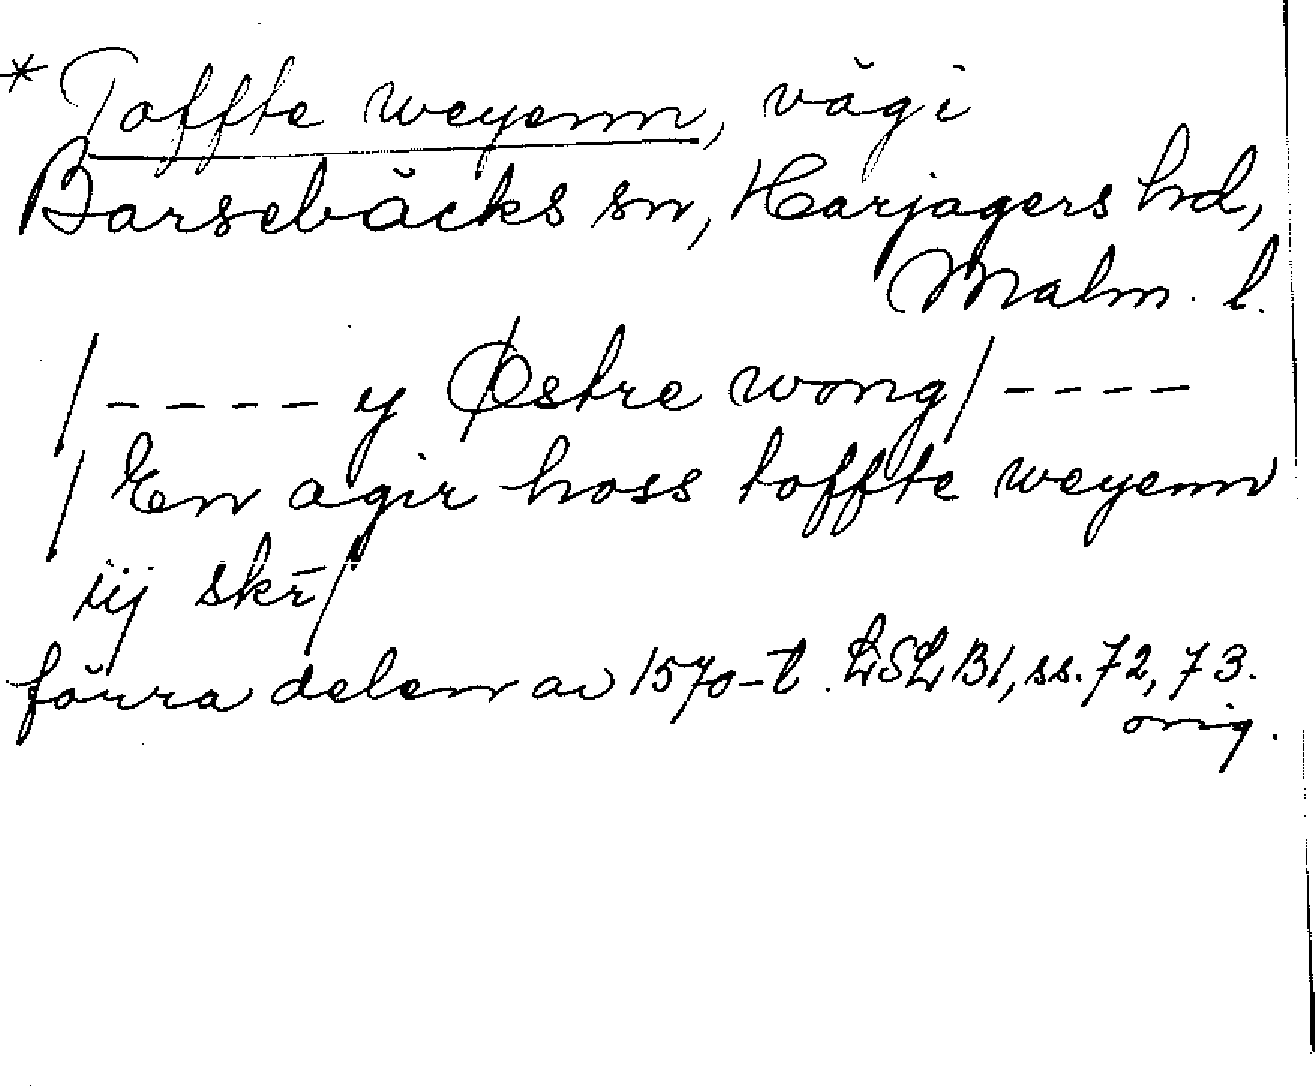 * Toffte weyenn, väg i
Barsebäcks sn, Harjagers hd,
Malm. l.
/---- y Østre wong/----
/ En agir hoss toffte weyenn
iij skr̄/
förra delen av 1570-t. LSL B1, ss. 72, 73.
orig.